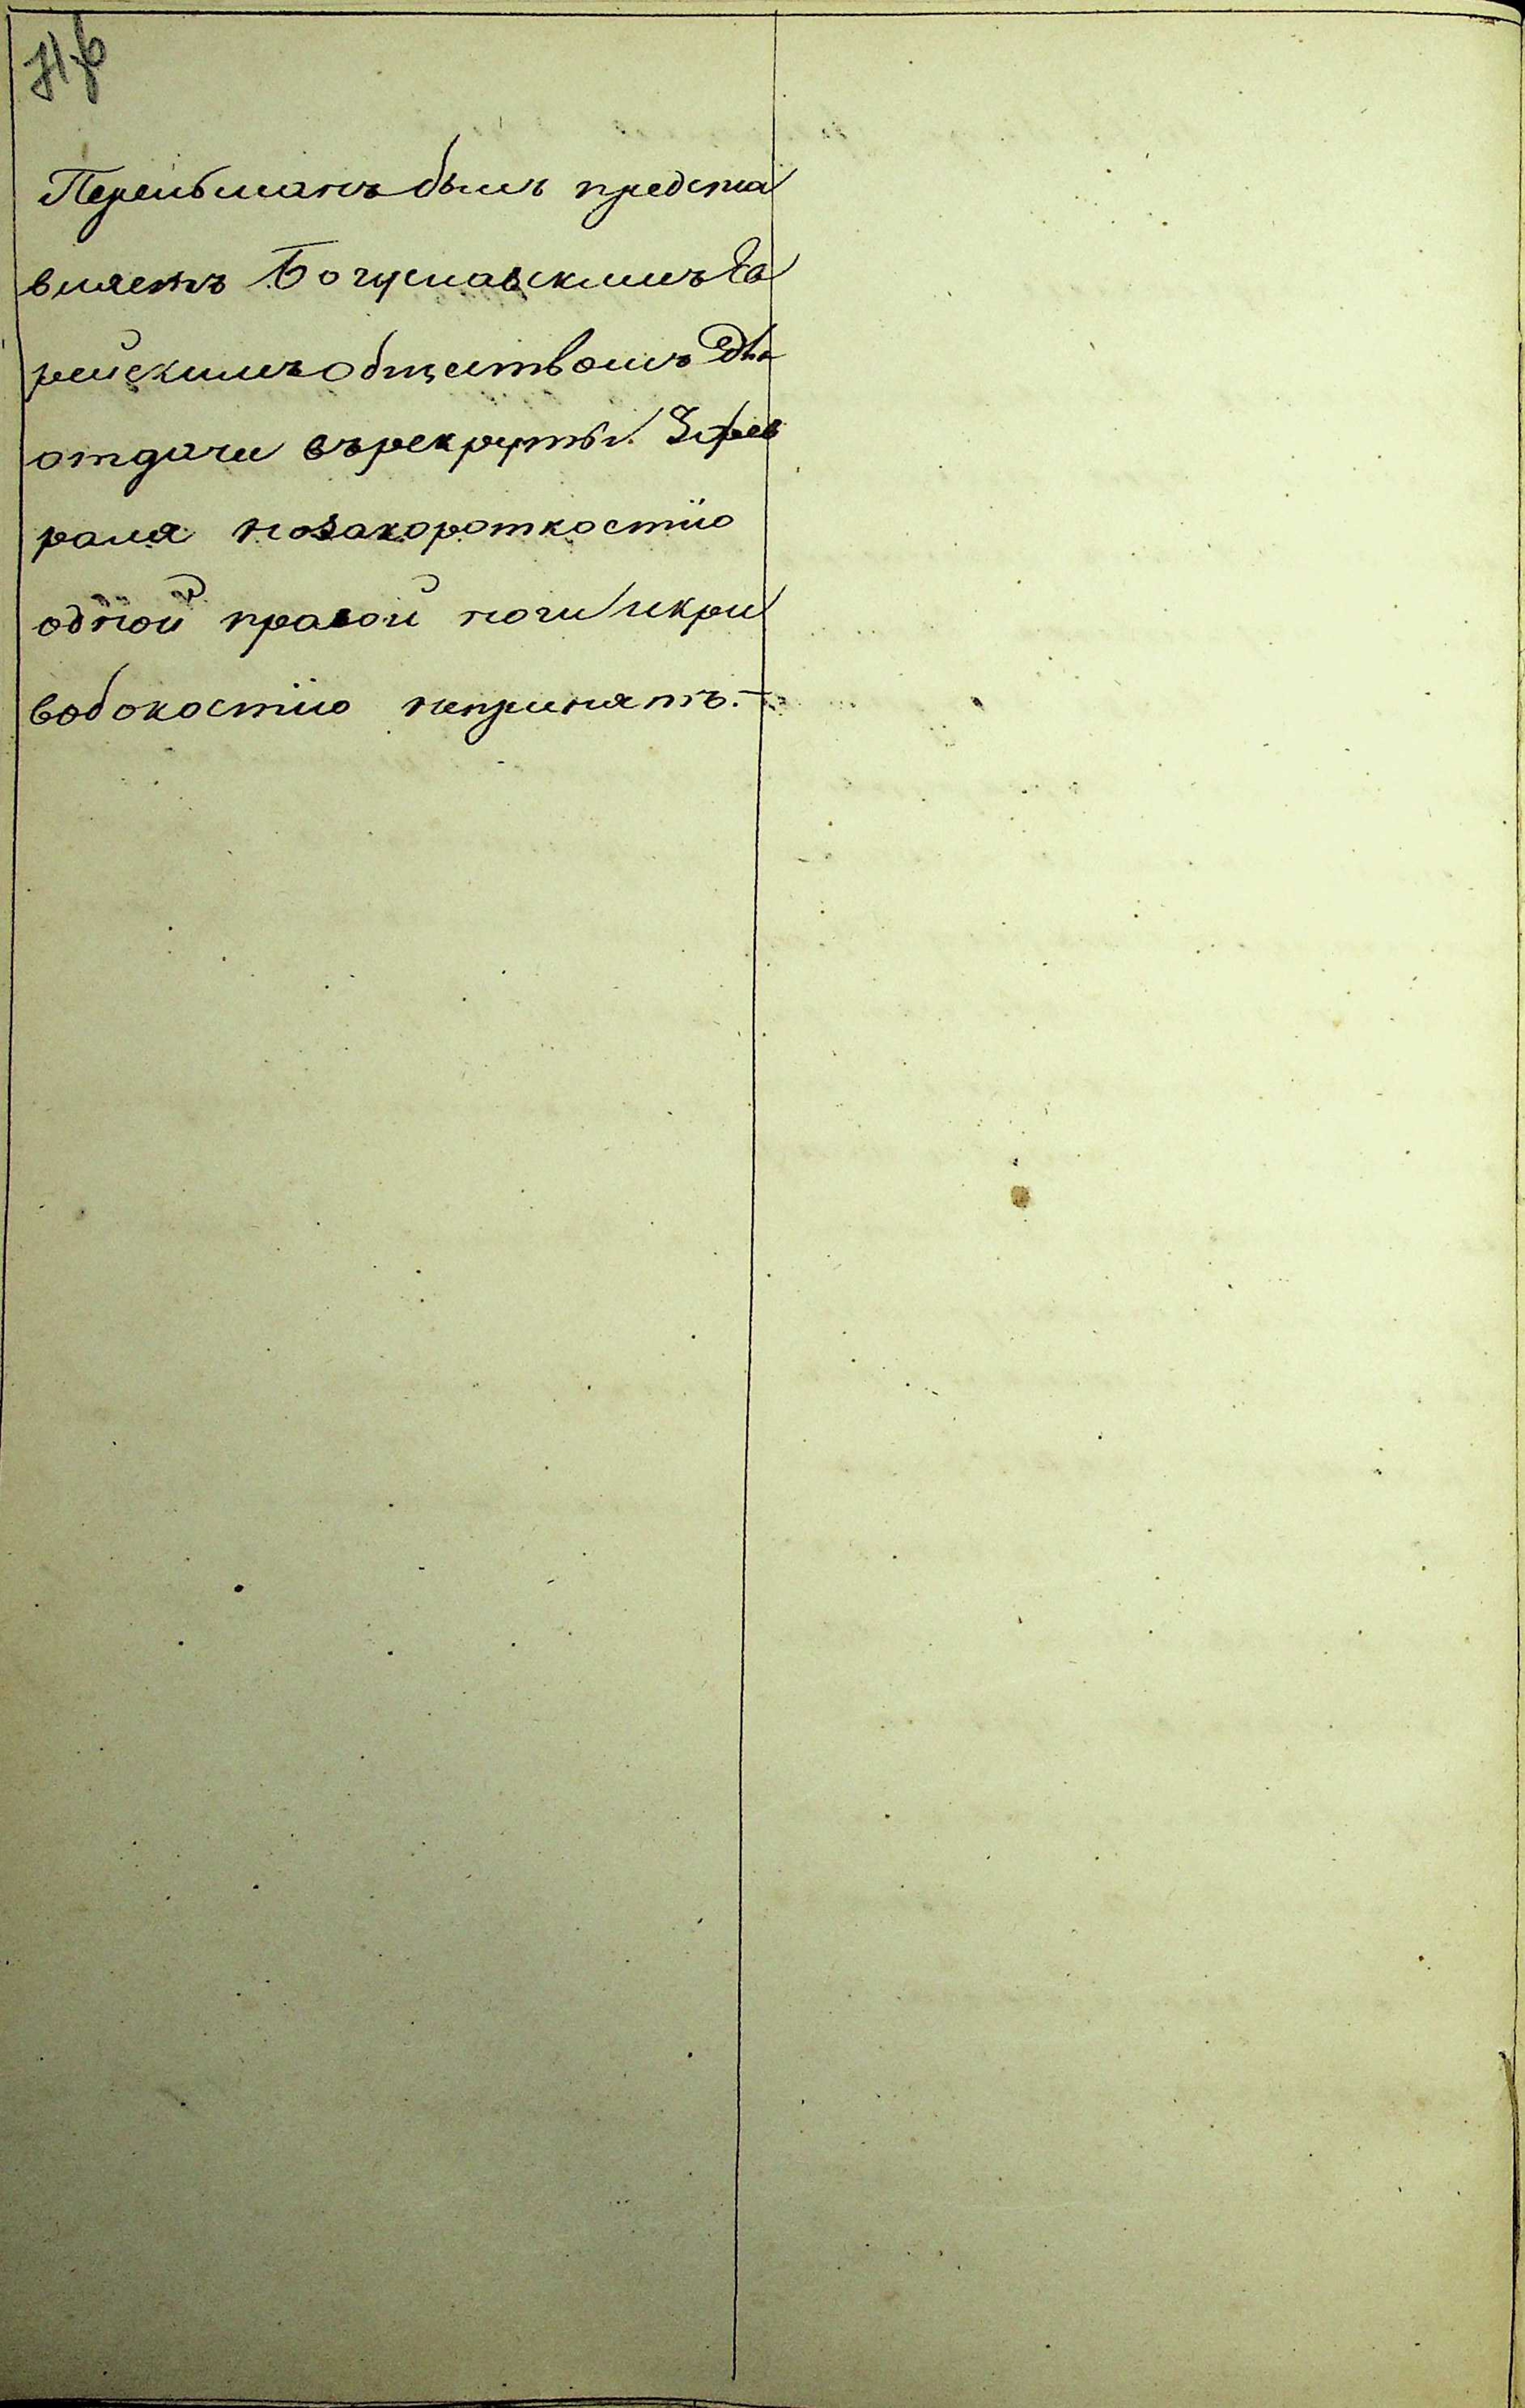 Перельманъ былъ предста
вляетъ Богуславскимъ Ев
рейскимъ обществомъ для
отдачи въ рекруты. 3 фев
раля но за короткостію
одной правой ноги и кри
вобокостію непринятъ.